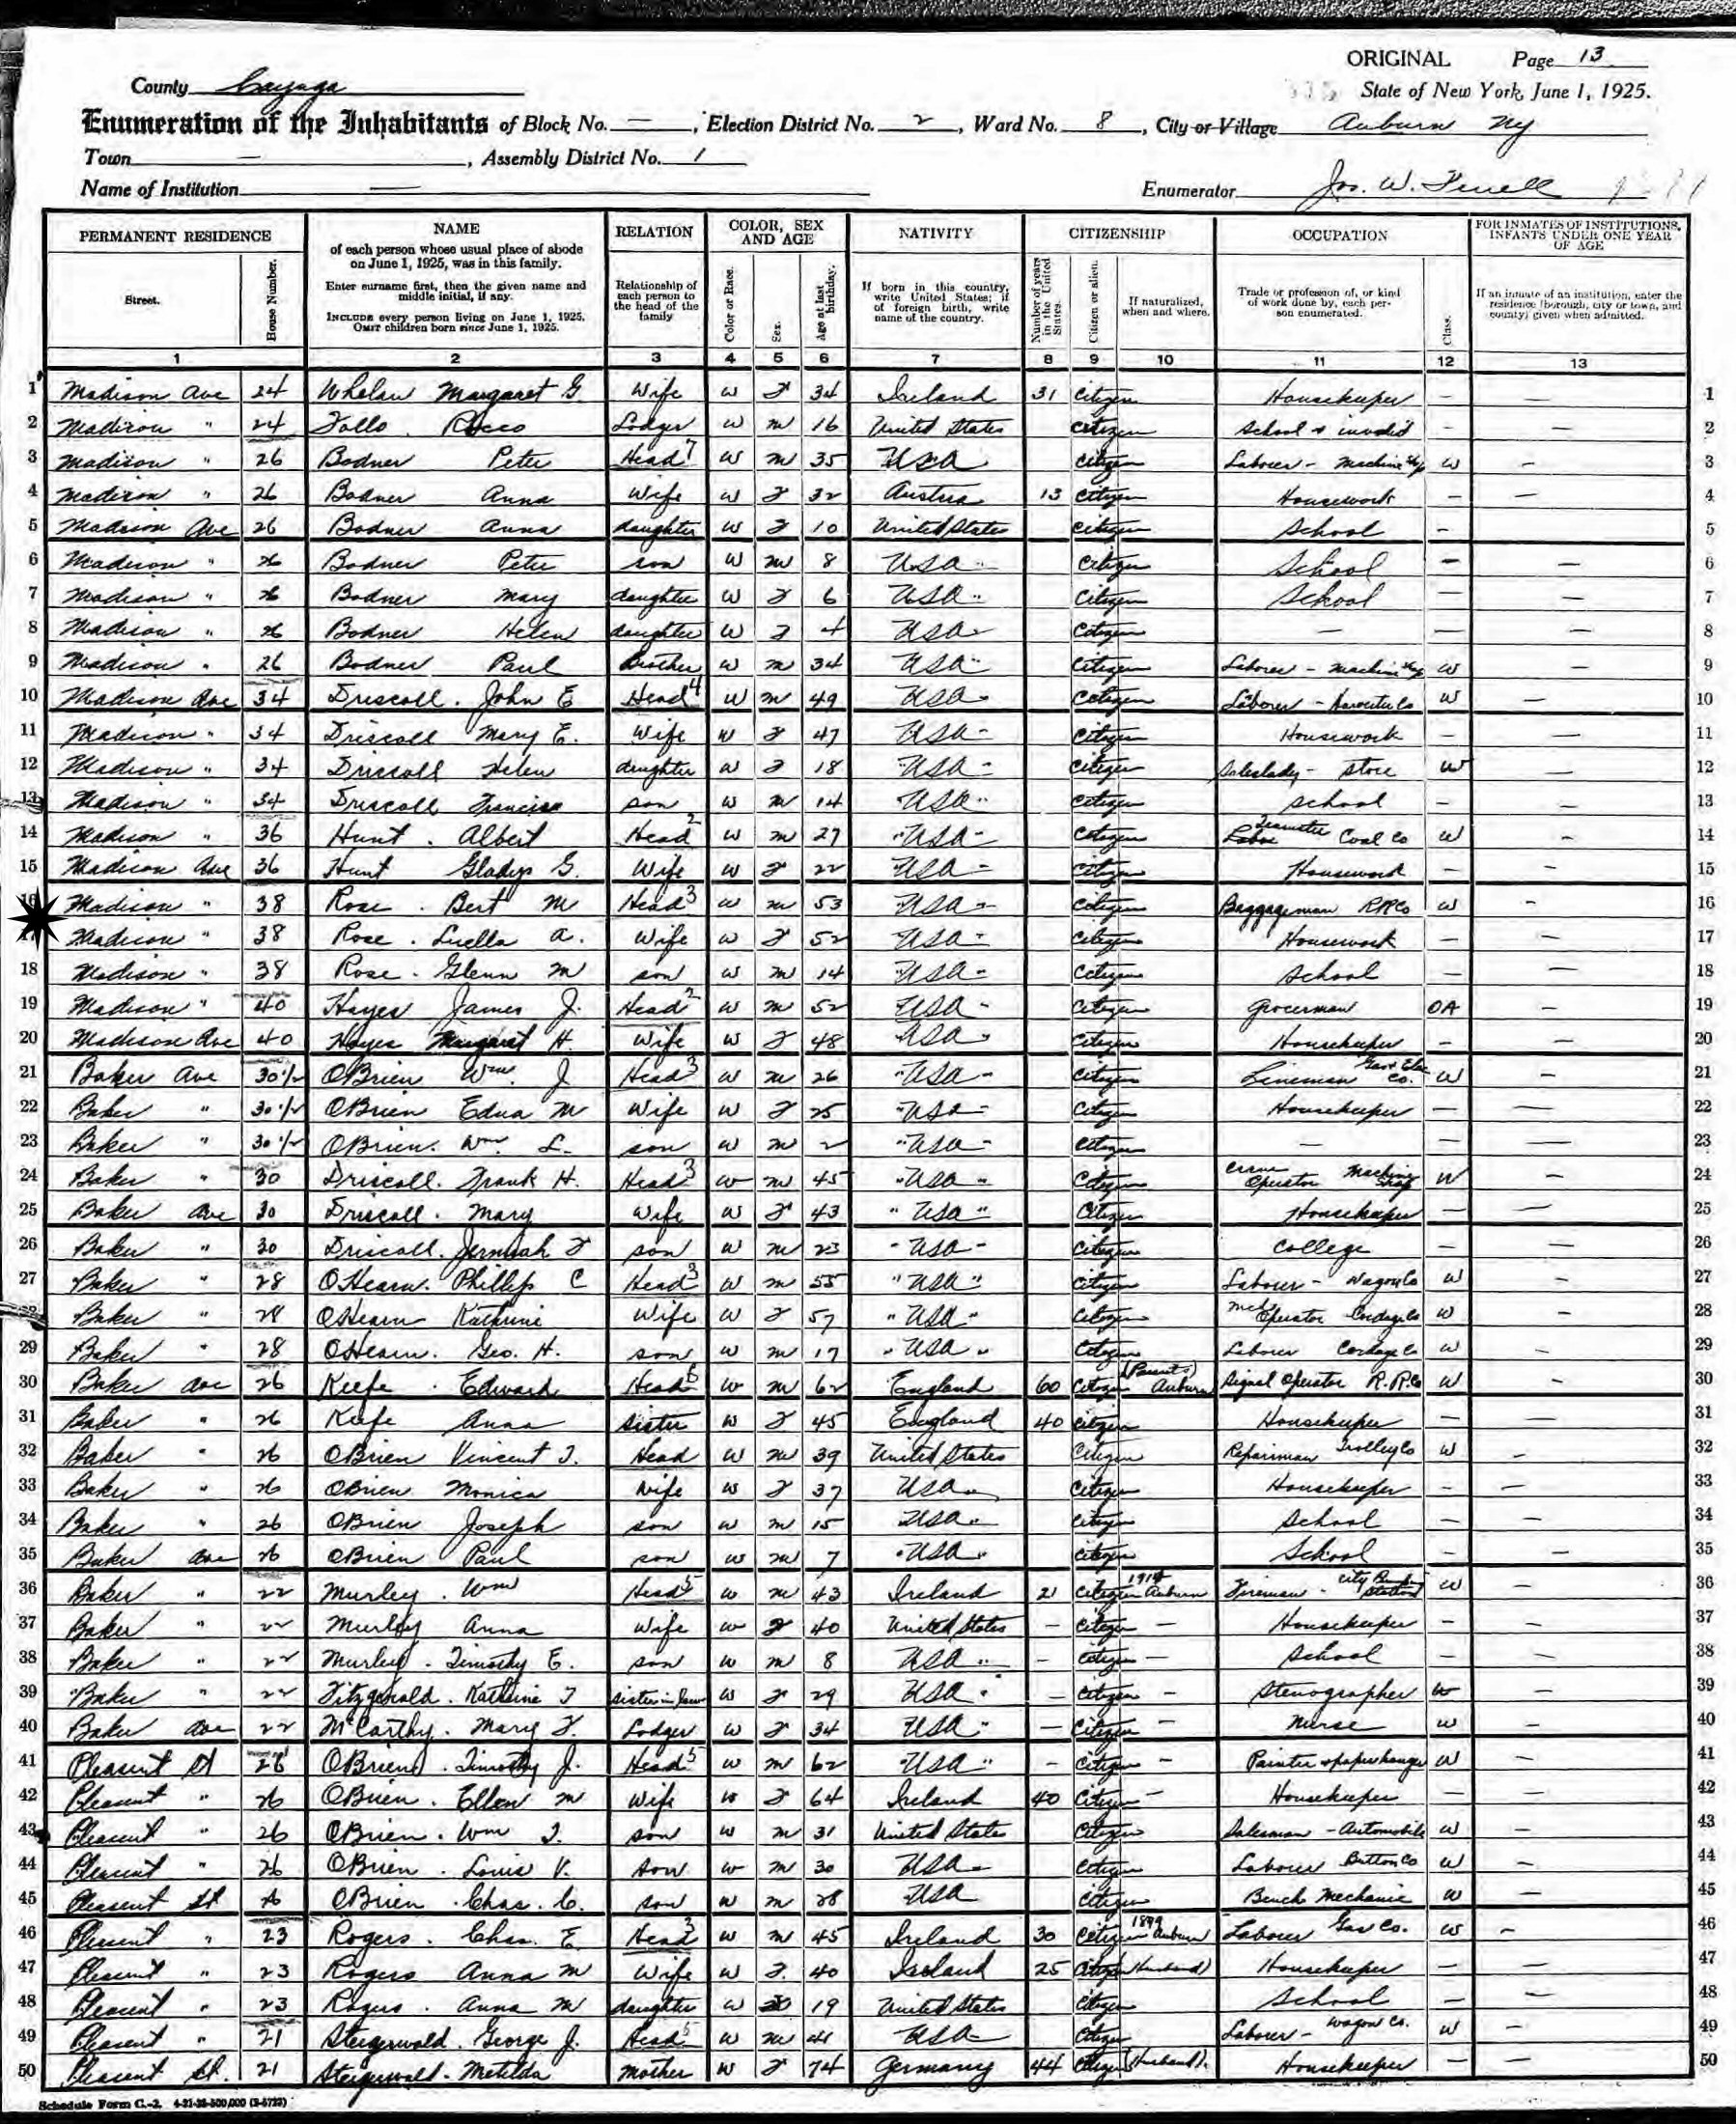 ORIGINAL Page 13
County Cayuga State of New York, June 1, 1925.
Enumeration of the Inhabitants of Block No. —, Election District No. 2, Ward No. 8, City or Village Auburn NY
Town —, Assembly District No. 1
Name of Institution — Enumerator Jos. W.
PERMANENT RESIDENCE NAME of each person whose usual place of abode on June 1, 1925, was in this family. Enter surname first, then the given name and middle initial, if any. INCLUDE every person living on June 1, 1925. OMIT children born since June 1, 1925. RELATION COLOR, SEX AND AGE NATIVITY CITIZENSHIP OCCUPATION FOR INMATES OF INSTITUTIONS, INFANTS UNDER ONE YEAR OF AGE
Street. House Number. Relationship of each person to the head of the family Color or Race. Sex. Age at last birthday. If born in this country, write United States; if of foreign birth, write name of the country. Number of years in the United States. Citizen or alien. If naturalized, when and where. Trade or profession of, or kind of work done by, each person enumerated. Class. If an inmate of an institution, enter the residence (borough, city or town, and county) given when admitted.
1 2 3 4 5 6 7 8 9 10 11 12 13
1 Madison Ave 24 Whelan Margaret G Wife W F 34 Ireland 31 Citizen Housekeeper — — 1
2 Madison " 24 Fallo Rocco Lodger W M 16 United States Citizen School & invalid — — 2
3 Madison " 26 Bodner Peter Head 7 W M 35 USA Citizen Laborer - Machine W — 3
4 Madison " 26 Bodner Anna Wife W F 32 Austria 13 Citizen Housework — — 4
5 Madison Ave 26 Bodner Anna daughter W F 10 United States Citizen School — 5
6 Madison " 26 Bodner Peter son W M 8 USA " Citizen School — — 6
7 Madison " 26 Bodner Mary daughter W F 6 USA " Citizen School — — 7
8 Madison " 26 Bodner Helen daughter W F 4 USA Citizen — — — 8
9 Madison " 26 Bodner Paul Brother W M 34 USA " Citizen Laborer - Machine W — 9
10 Madison Ave 34 Driscoll. John E Head 4 W M 49 USA Citizen Laborer - Co W — 10
11 Madison " 34 Driscoll Mary E. Wife W F 47 USA Citizen Housework — — 11
12 Madison " 34 Driscoll Helen daughter W F 18 "USA" Citizen Saleslady - Store W — 12
13 Madison " 34 Driscoll Francis son W M 14 "USA" Citizen School — — 13
14 Madison " 36 Hunt. Albert Head 2 W M 27 "USA" Citizen Teamster Coal Co W — 14
15 Madison Ave 36 Hunt Gladys G. Wife W F 22 USA Citizen Housework — — 15
16 Madison " 38 Rose. Bert M Head 3 W M 53 "USA" Citizen Baggageman RR Co W — 16
17 Madison " 38 Rose. Luella A. Wife W F 52 "USA" Citizen Housework — — 17
18 Madison " 38 Rose. Glenn M son W M 14 "USA" Citizen School — — 18
19 Madison " 40 Hayes James J. Head 2 W M 52 USA Citizen Grocerman OA — 19
20 Madison Ave 40 Hayes Margaret H. Wife W F 48 USA Citizen Housekeeper — — 20
21 Baker Ave 30 1/2 OBrien Wm. J Head 3 W M 26 "USA" Citizen Lineman Gas & Elec Co. W — 21
22 Baker " 30 1/2 OBrien Edna M Wife W F 25 "USA" Citizen Housekeeper — — 22
23 Baker " 30 1/2 OBrien. Wm. L. son W M 2 "USA" Citizen — — — 23
24 Baker " 30 Driscoll. Frank H. Head 3 W M 45 "USA" Citizen Crane Operator Machine Shop W — 24
25 Baker Ave 30 Driscoll. Mary Wife W F 43 "USA" Citizen Housekeeper — — 25
26 Baker " 30 Driscoll. Jermiah F son W M 23 "USA" Citizen College — — 26
27 Baker " 28 OHearn. Phillip C Head 3 W M 55 "USA" Citizen Laborer - Wagon Co W — 27
28 Baker " 28 OHearn Kathrine Wife W F 57 "USA" Citizen Operator Cordage Co W — 28
29 Baker " 28 OHearn. Geo. H. son W M 17 "USA" Citizen Laborer Cordage Co W — 29
30 Baker Ave 26 Keefe. Edward Head W M 62 England 60 Citizen (Parents) Auburn Signal Operator R.R. Co W — 30
31 Baker " 26 Keefe Anna Sister W F 45 England 40 Citizen Housekeeper — — 31
32 Baker " 26 OBrien Vincent J. Head W M 39 United States Citizen Repairman Trolley Co W — 32
33 Baker " 26 OBrien Monica Wife W F 37 USA " Citizen Housekeeper — — 33
34 Baker " 26 OBrien Joseph son W M 15 USA " Citizen School — — 34
35 Baker Ave 26 OBrien Paul son W M 7 "USA" Citizen School — — 35
36 Baker " 22 Murley. Wm Head 5 W M 43 Ireland 21 Citizen 1914 Auburn Fireman - City Station W — 36
37 Baker " 22 Murley Anna Wife W F 40 United States — Citizen — Housekeeper — — 37
38 Baker " 22 Murley. Timothy E. son W M 8 USA " — Citizen — School — — 38
39 Baker " 22 Fitzgerald. Kathrine F sister in law W F 29 USA " — Citizen — Stenographer W — 39
40 Baker Ave 22 McCarthy. Mary F. Lodger W F 34 USA " — Citizen — Nurse W — 40
41 Pleasant St 26 OBrien. Timothy J. Head 5 W M 62 "USA" — Citizen — Painter & paperhanger W — 41
42 Pleasant " 26 OBrien. Ellen M Wife W F 64 Ireland 40 Citizen — Housekeeper — — 42
43 Pleasant " 26 OBrien. Wm J. son W M 31 United States Citizen Salesman - Automobile W — 43
44 Pleasant " 26 OBrien. Louis V. son W M 30 USA Citizen Laborer Button Co W — 44
45 Pleasant St 26 OBrien. Chas. C. son W M 28 USA Citizen Bench Mechanic W — 45
46 Pleasant " 23 Rogers. Chas. E. Head 3 W M 45 Ireland 30 Citizen 1899 Auburn Laborer Gas Co. W — 46
47 Pleasant " 23 Rogers Anna M Wife W F 40 Ireland 25 Citizen (Husband) Housekeeper — — 47
48 Pleasant " 23 Rogers. Anna M daughter W F 19 United States Citizen School — — 48
49 Pleasant " 21 Steigerwald. George J. Head 5 W M 41 USA Citizen Laborer - Wagon Co. W — 49
50 Pleasant St. 21 Steigerwald. Metilda Mother W F 74 Germany 44 Citizen (Husband). Housekeeper — — 50
Schedule Form C.-2. 4-21-25-500,000 (3-5723)